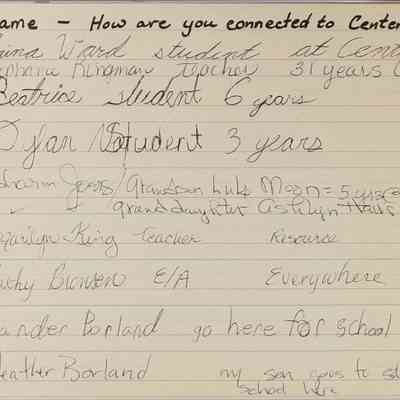 ame - How are you connected to Center
ina Ward student at Cen
Kingman teacher 31 years
Beatrice student 6 years
Dylan student 3 years
Grandson Luke Moon = 5 yrs
granddaughter
Marilyn King teacher Resource
athy Bowen E/A Everywhere
ander Borland go here for school
Heather Borland my son goes to
school here